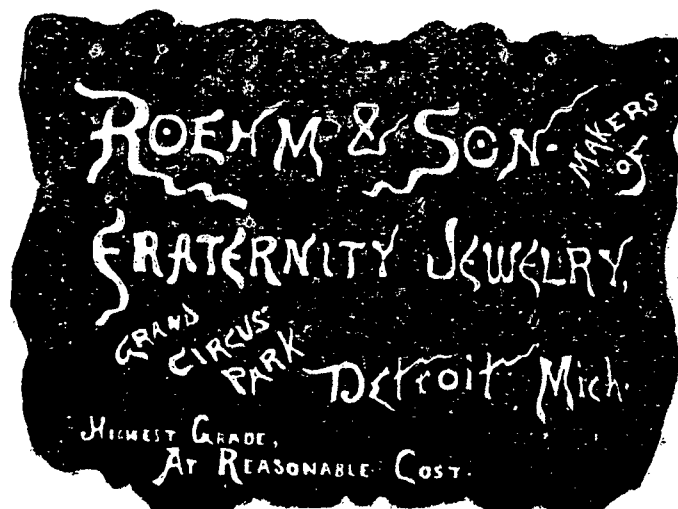 ROEHM & SON.
MAKERS
OF
FRATERNITY JEWELRY,
GRAND
CIRCUS
PARK
Detroit Mich.
HIGHEST GRADE,
AT REASONABLE COST.